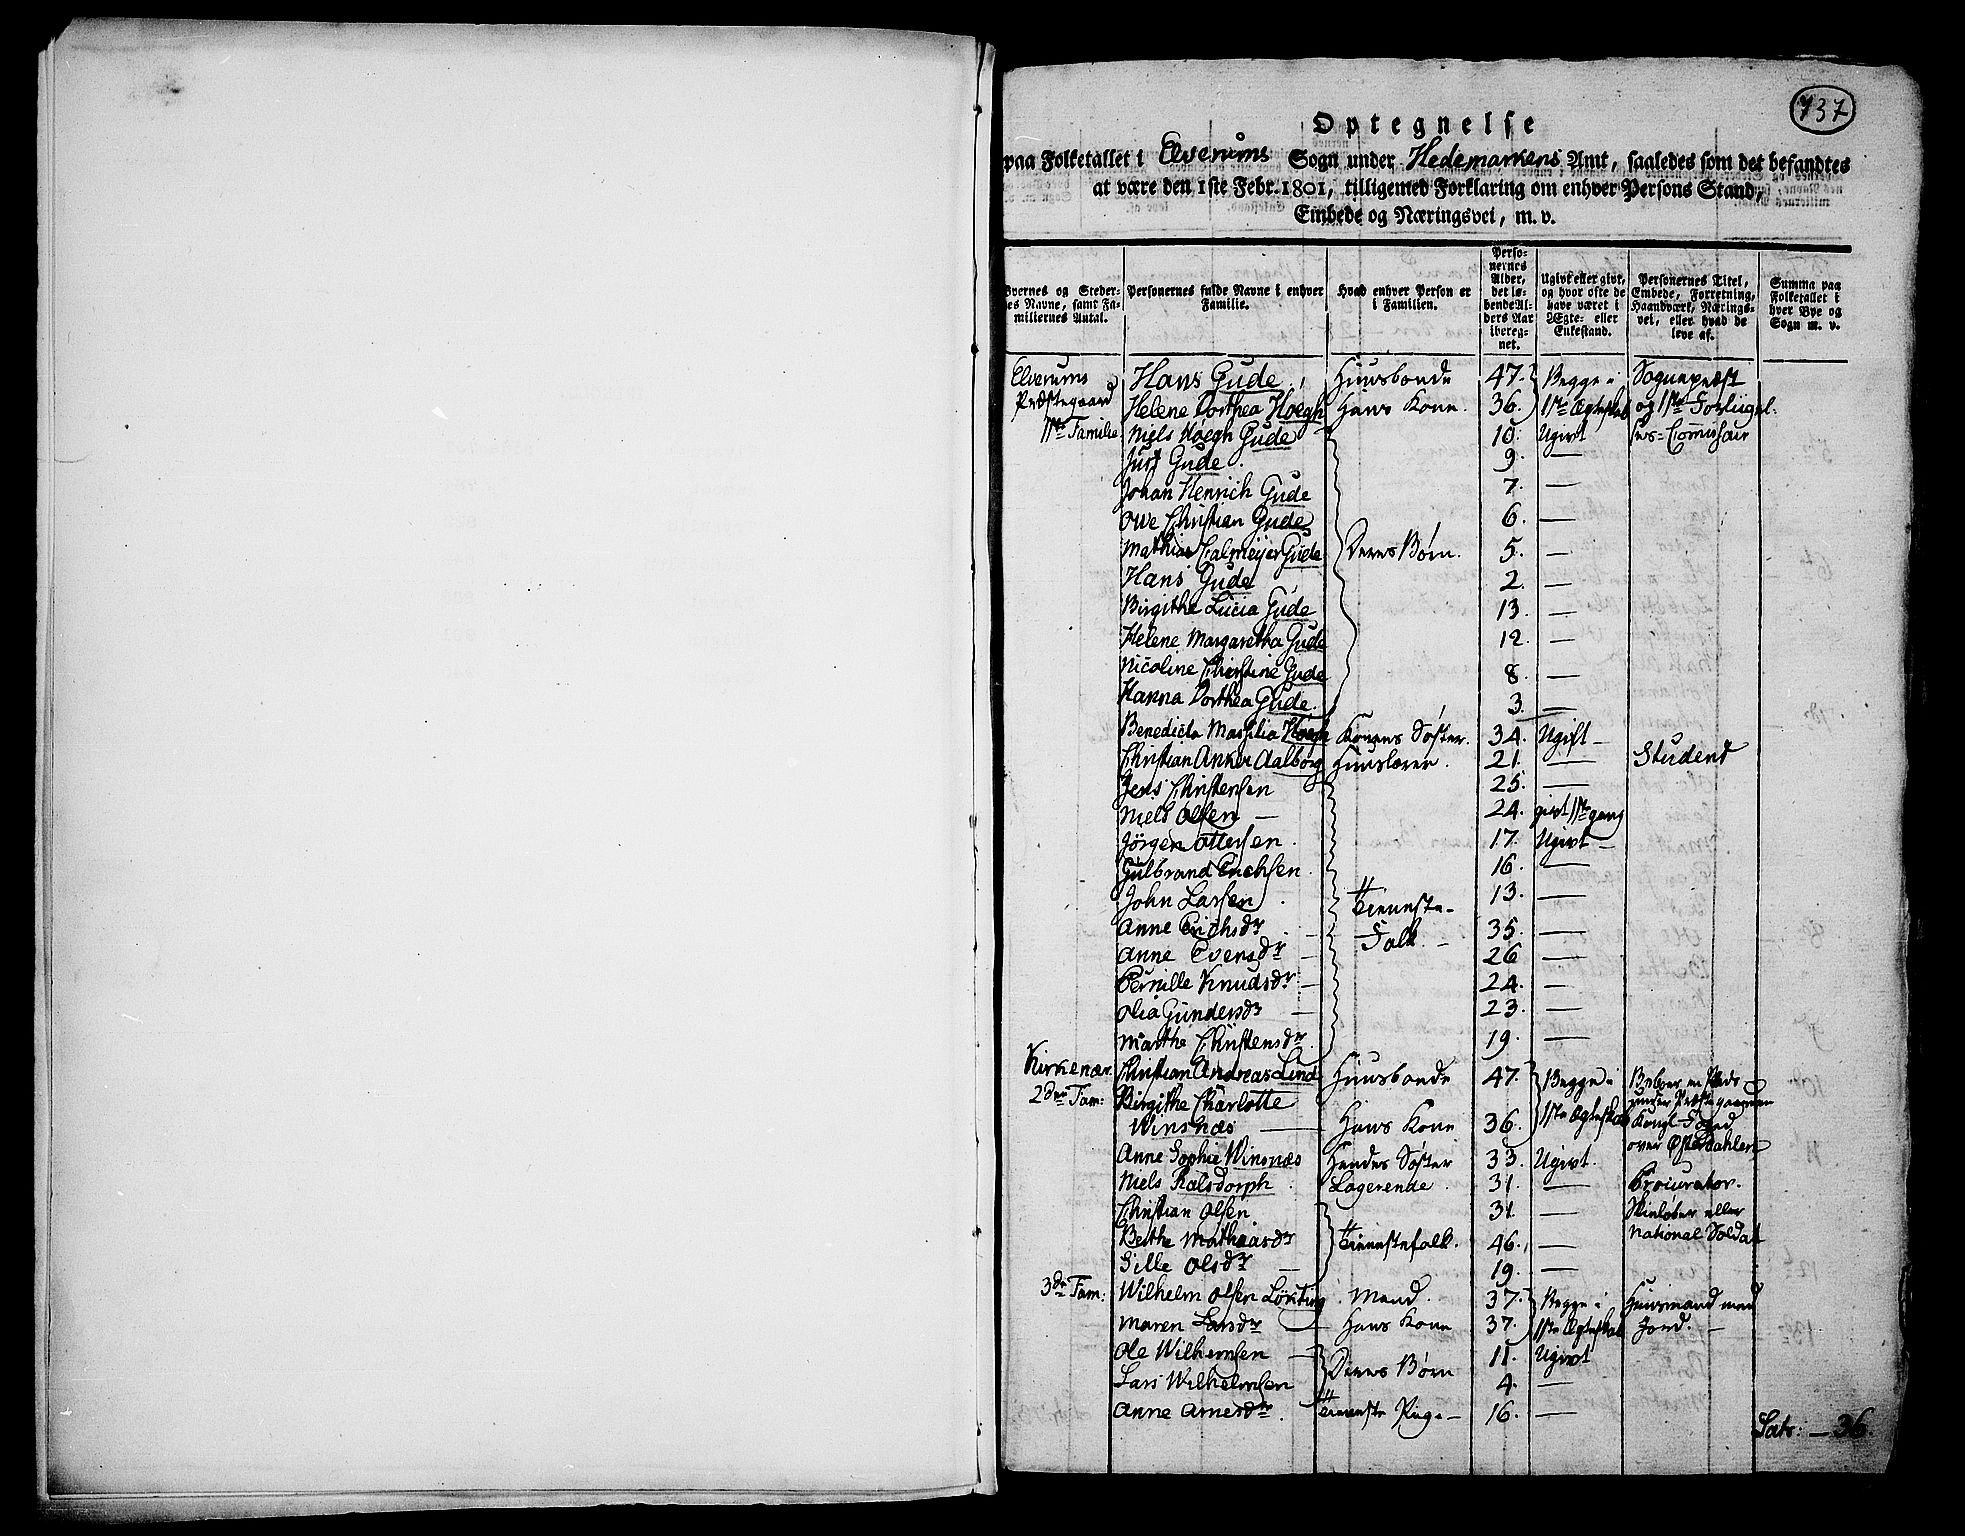 737
Optegnelse
paa Folketallet i Elverums Sogn under Hedemarkens Amt, saaledes som det befandtes
at være den 1ste Febr. 1801, tilligemed Forklaring om enhver Persons Stand,
Embede og Næringsvei, m. v.
Byernes og Steder-
nes Navne, samt Fa-
miliernes Antal.
Personernes fulde Navne i enhver
Familie.
Hvad enhver Person er
i Familien.
Perso-
nernes
Alder,
det lø-
bende Al-
ders Aar
ibereg-
net.
Ugivt eller givt,
og hvor ofte de
have været i
Ægte- eller
Enkestand.
Personernes Titel,
Embede, Forretning,
Haandværk, Nærings-
vei, eller hvad de
leve af.
Summa paa
Folketallet i
hver Bye og
Sogn m. v.
Elverums Hans Gude Huusbonde 47. Begge i Sognepræst
Præstegaard Helene Dorthea Hoegh Hans Kone. 36. 1ste Ægteskab og 1ste Forligel-
1ste Familie Niels Hoegh Gude 10. Ugivt ses-Commissair
Just Gude. 9. —
Johan Henrich Gude 7. —
Owe Christian Gude 6. —
Mathias Calmeijer Gude Deres Børn. 5. —
Hans Gude 2. —
Birgithe Lucia Gude 13. —
Helene Margaretha Gude 12. —
Nicoline Christine Gude 8. —
Hanna Dorthea Gude. 3. —
Benedicta Massilia Hoegh Konens Søster. 34. Ugift —
Christian Anker Aalborg Huuslærer. 21. — Student
Jens Christensen 25. —
Niels Olsen — 24. givt 1ste gang
Jörgen Ottersen. 17. Ugivt —
Gulbrand Erichsen. 16. —
John Larsen. Tieneste- 13. —
Anne Erichsdr — Folk. — 35. —
Anne Evensdr — 26 —
Pernille Knudsdr — 24. —
Olia Gundersdr — 23. —
Marthe Christensdr 19. —
Kirkenær. Christian Andreas Lind Huusbonde 47. Begge i Beboer en Plads
2den Fam: Birgithe Charlotte under Præstegaarden
Winsnæs — Hans Kone 36. 1ste Ægteskab Kongl. Foged
over Østerdahlen
Anne Sophie Winsnæs Hendes Søster 33. Ugivt.
Niels Ralsdorph. Logerende. 31. — Procurator.
Christian Olsen 31. — Skieløber eller
National Soldat
Berthe Mathiasdr Tienestefolk. 46. —
Sille Olsdr — 19. —
3de Fam: Wilhelm Olsen Mand. 37. Begge i Huusmand med
Maren Larsdr Hans Kone 37. 1ste Ægteskab Jord. —
Ole Wilhemsen — Deres Børn 11. Ugivt
Lars Wilhelmsen 4. —
Anne Arnesdr. Tieneste Pige — 16. —
Lats: — 36.